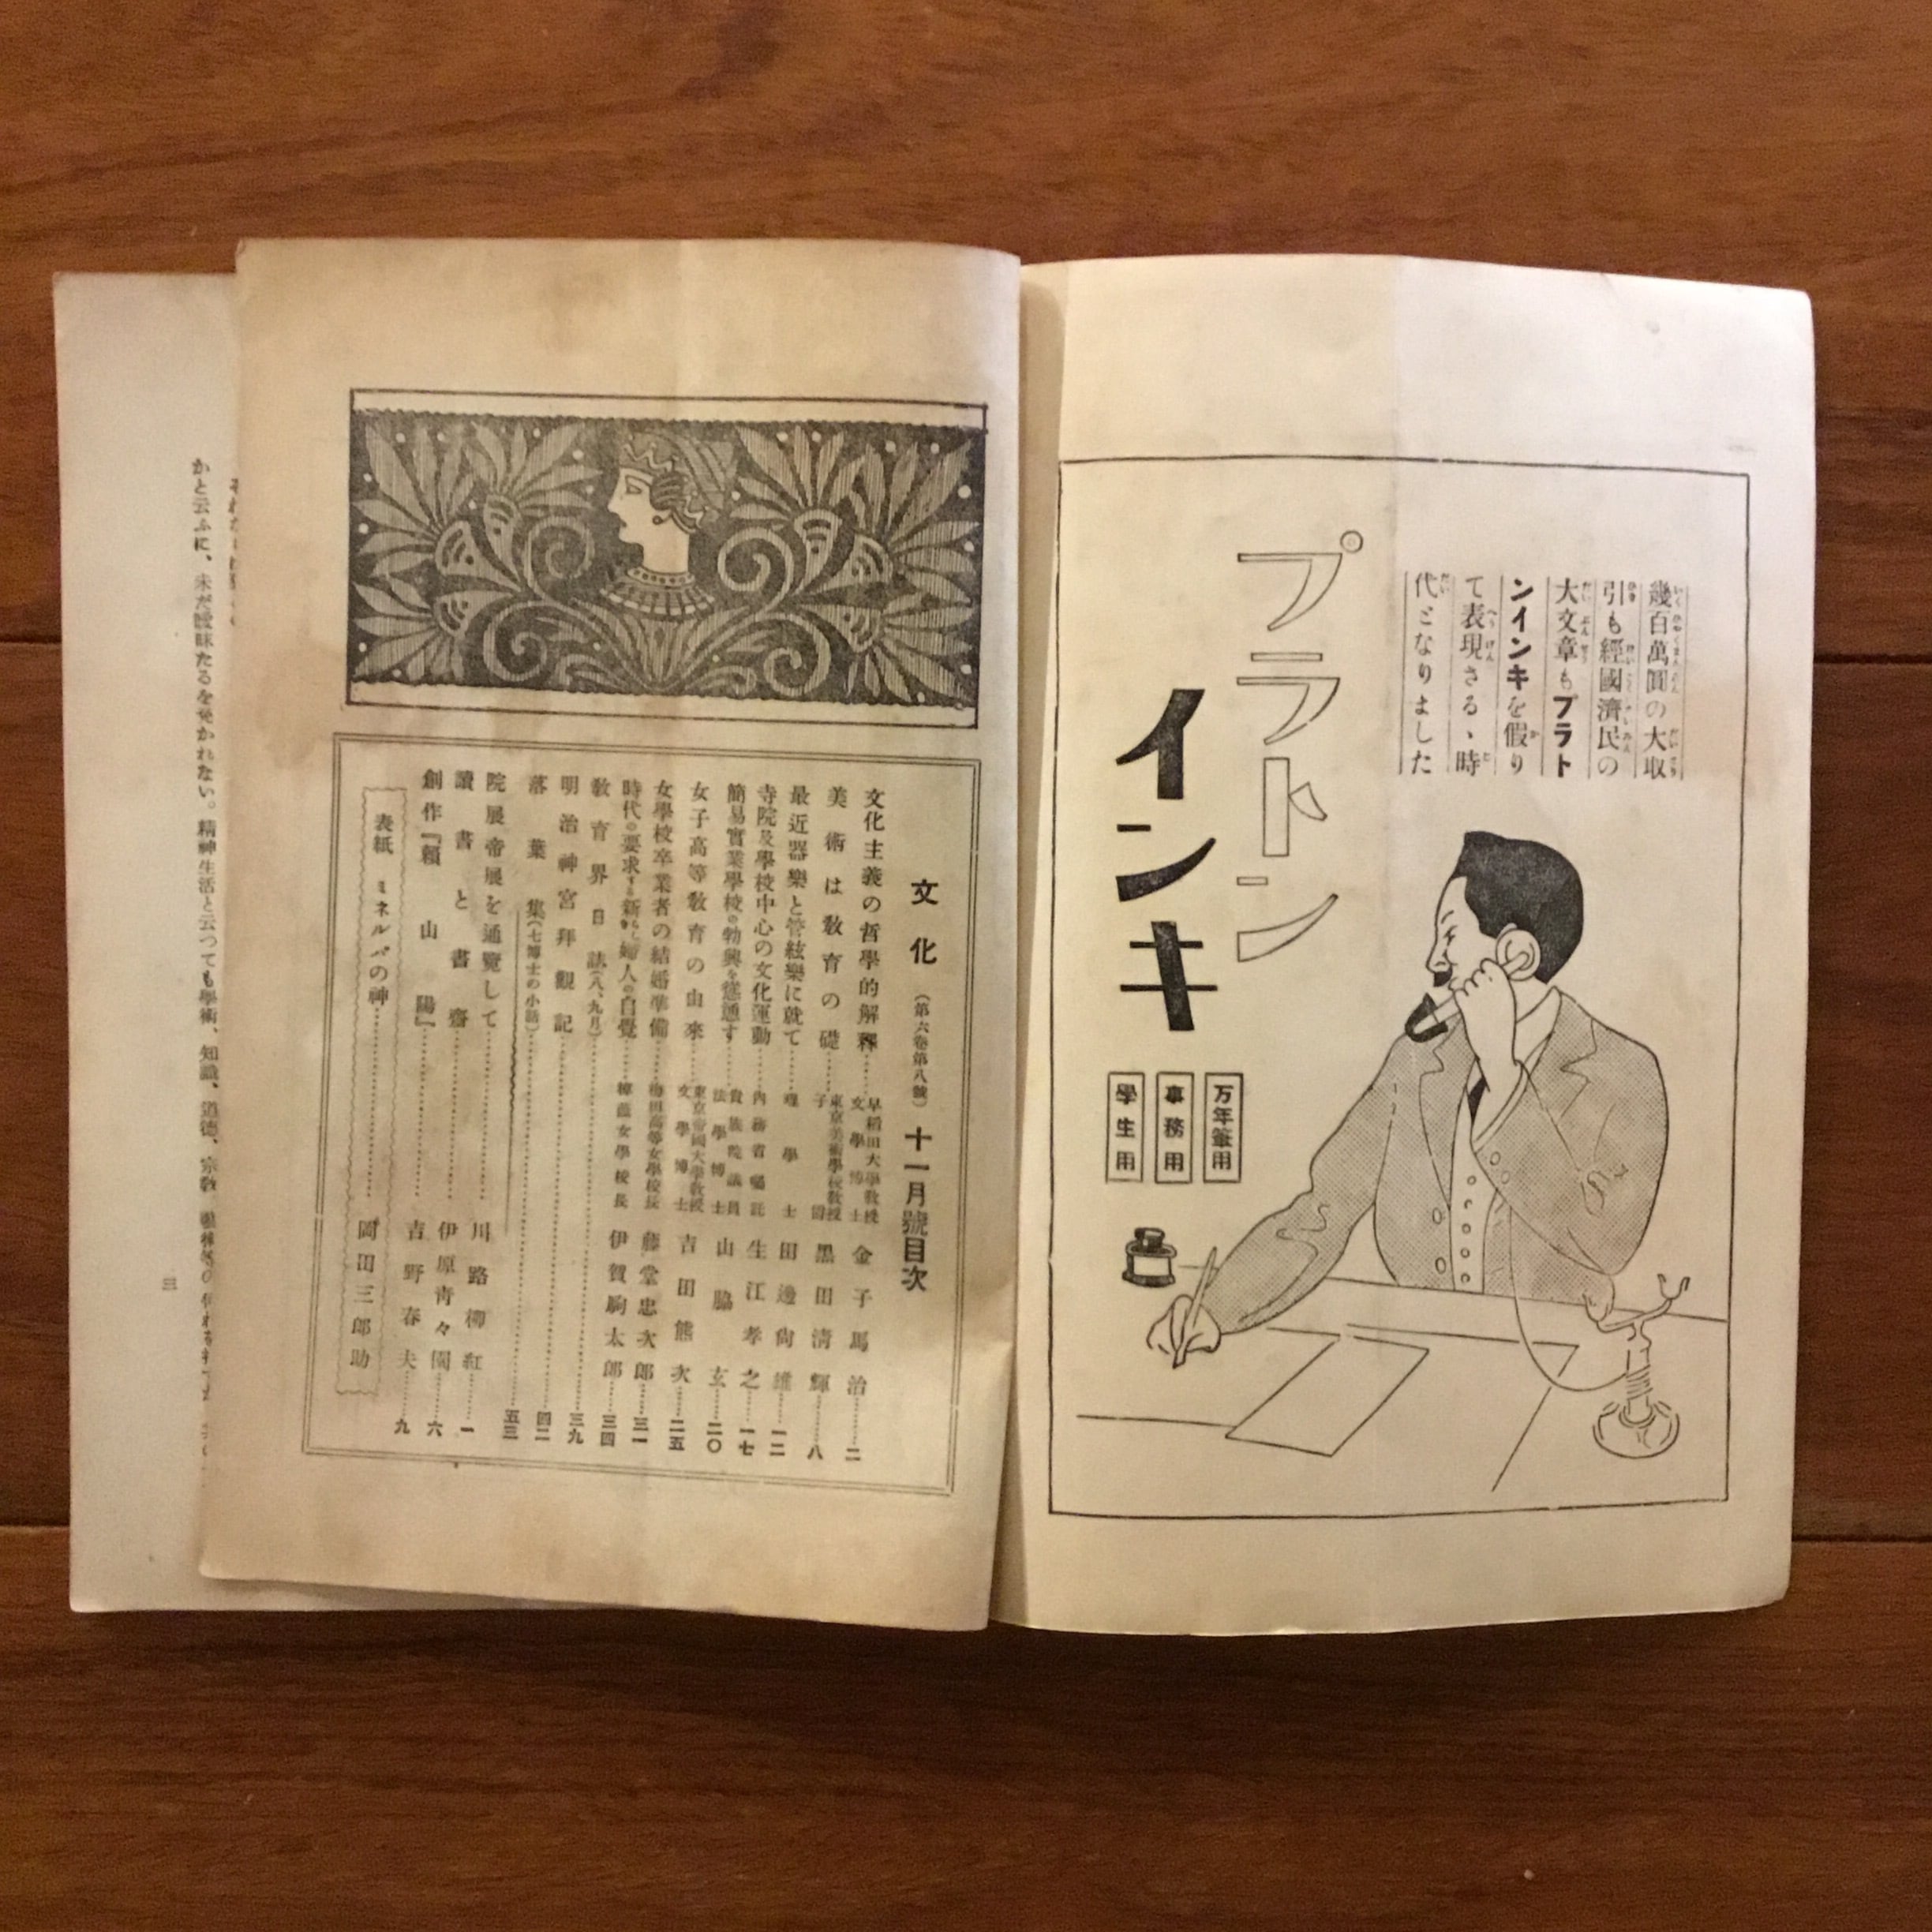 幾百萬圓の大取
引も經國濟民の
大文章もプラト
ンインキを假り
て表現さるゝ時
代となりました
プラトン
インキ
万年筆用
事務用
學生用
文化(第六卷第八號)十一月號目次
文化主義の哲學的解釋 早稻田大學教授 文學博士 金子馬治 二
美術は教育の礎 東京美術學校教授 子爵 黑田淸輝 八
最近器樂と管絃樂に就て 理學士 田邊尙雄 一二
寺院及學校中心の文化運動 內務省囑託 生江孝之 一七
簡易實業學校の勃興を慫慂す 貴族院議員 法學博士 山脇玄 二〇
女子高等敎育の由來 東京帝國大學敎授 文學博士 吉田熊次 二五
女學校卒業者の結婚準備 梅田高等女學校長 藤堂忠次郎 三一
時代の要求する新らしき婦人の自覺 樟蔭女學校長 伊賀駒太郎 三四
敎育界日誌(八、九月) 三九
明治神宮拜觀記 四二
落葉集(七博士の小話) 五三
院展帝展を通覽して 川路柳紅 一
讀書と書齋 伊原靑々園 六
創作『賴山陽』 吉野春夫 九
表紙 ミネルバの神 岡田三郎助
かと云ふに、未だ曖昧たるを免かれない。精神生活と云つても學術、知識、道德、宗敎、
三